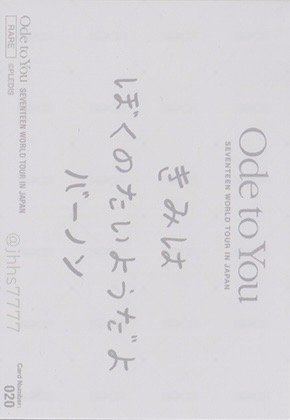 Ode to You
SEVENTEEN WORLD TOUR IN JAPAN
きみは
ぼくのたいようだよ
バーノン
Ode to You SEVENTEEN WORLD TOUR IN JAPAN
RARE ©PLEDIS
@lhhs7777
Card Number: 020